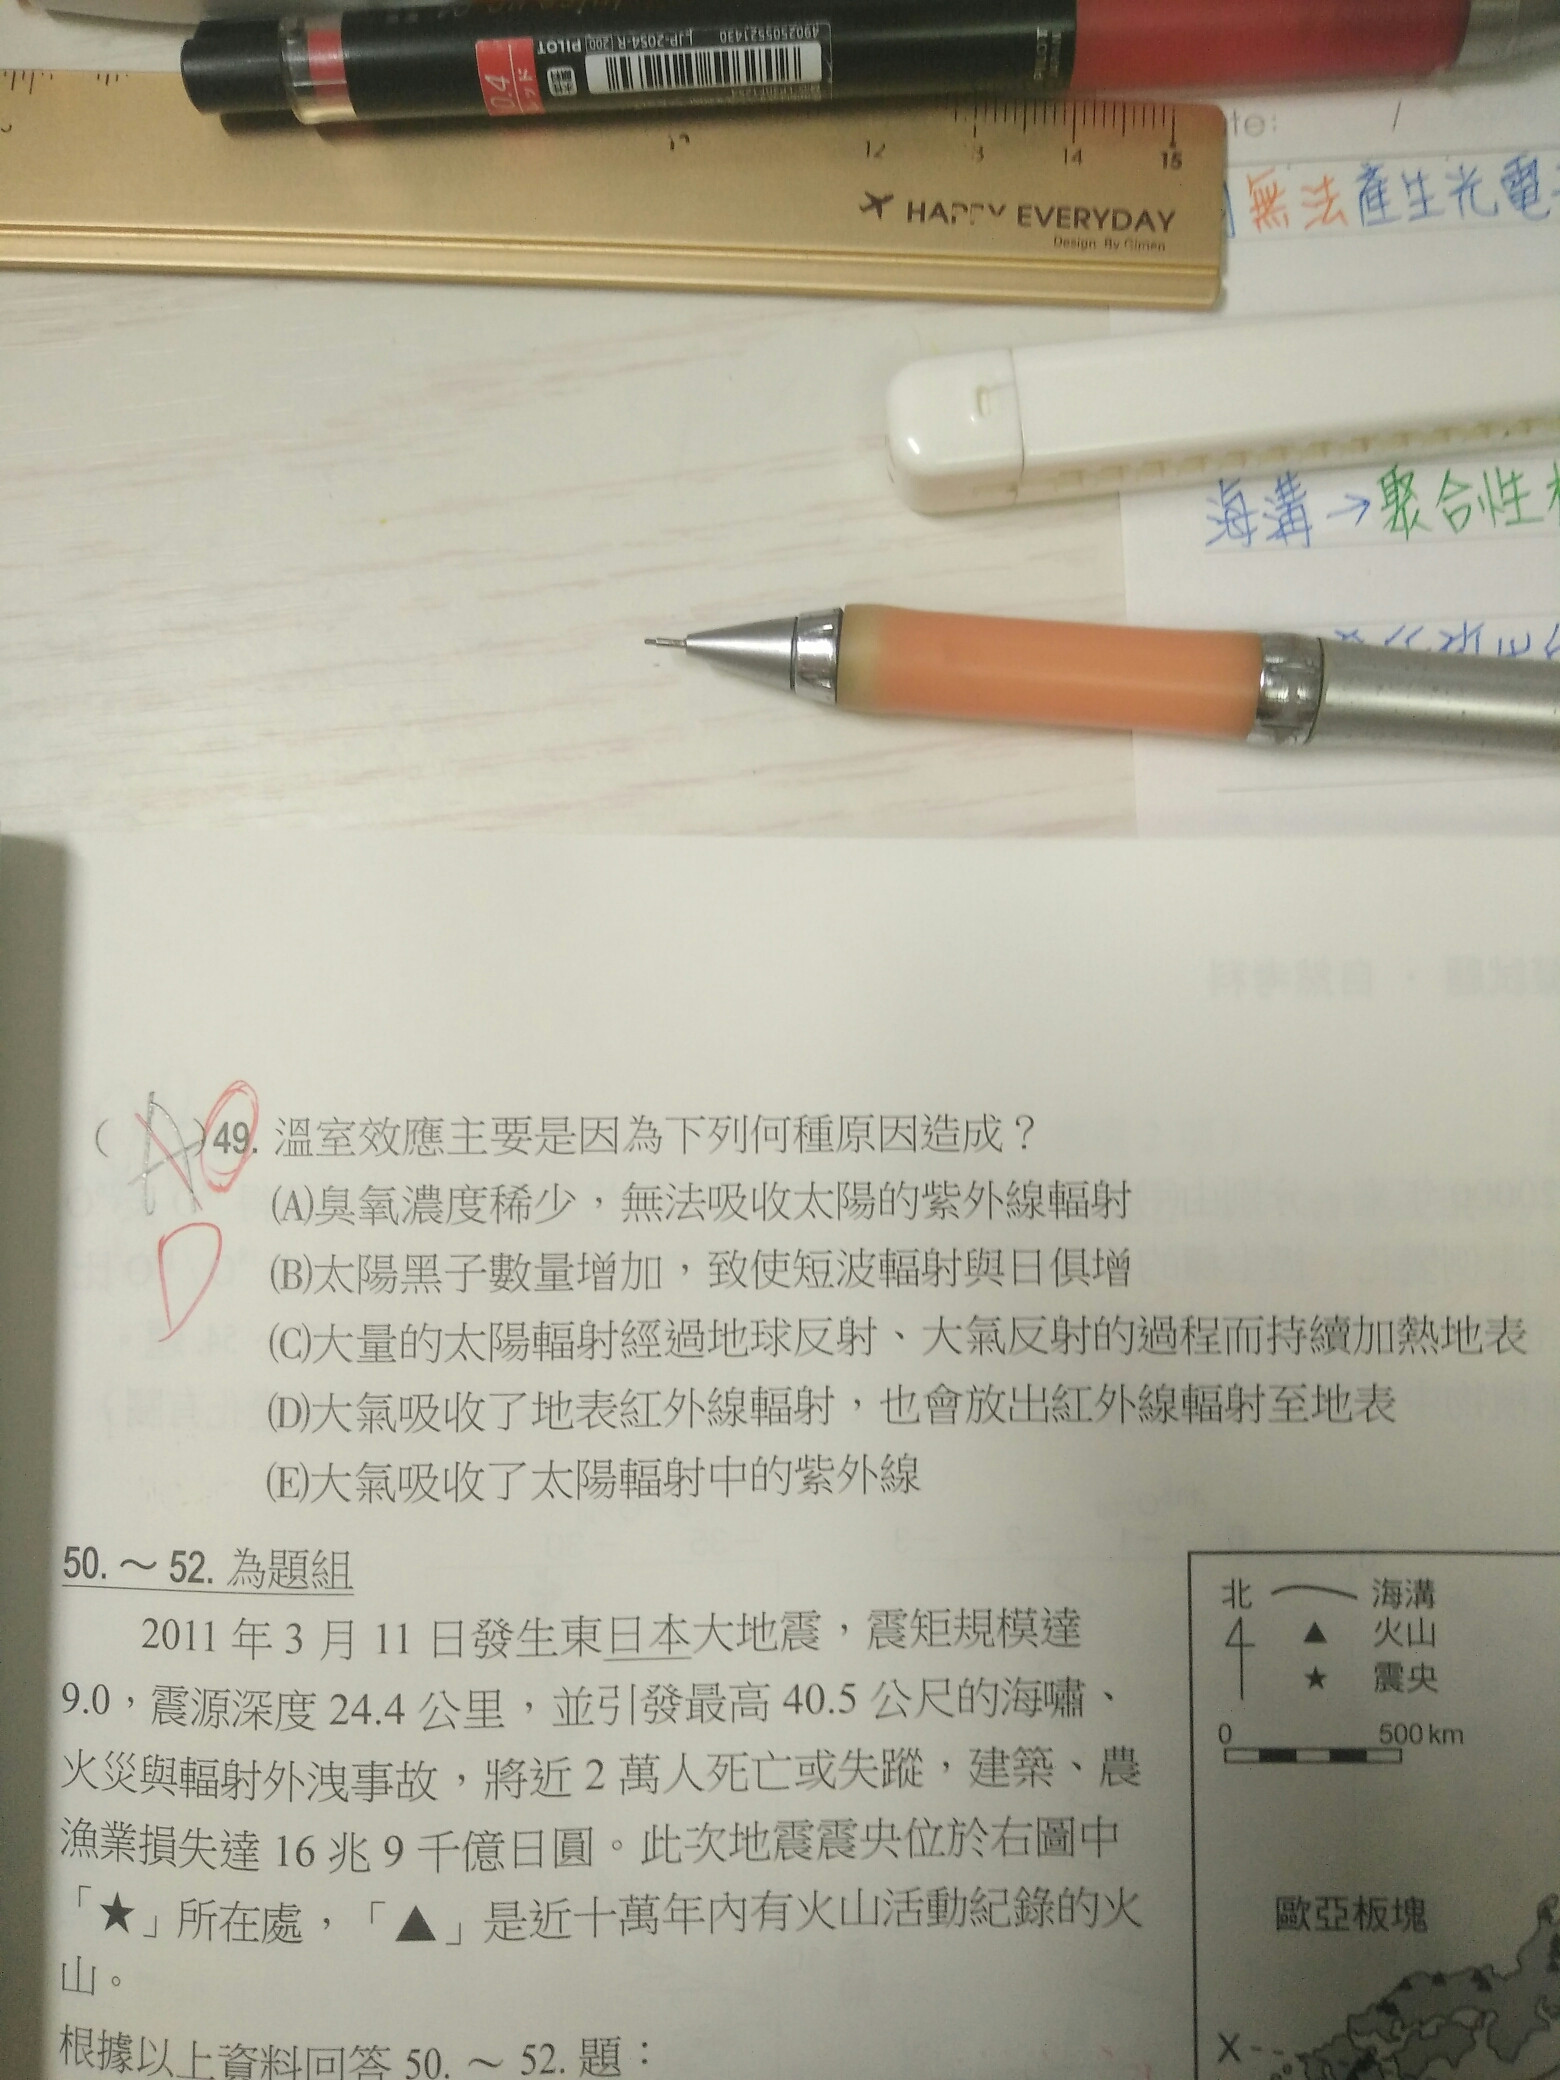 4902505521430
LJP-20S4-R [200] PILOT
0.4
12 13 14 15
HAPPY EVERYDAY
Design By Gimen
te: /
無法產生光電
海溝→聚合性
(A)49. 溫室效應主要是因為下列何種原因造成？
D
(A)臭氧濃度稀少，無法吸收太陽的紫外線輻射
(B)太陽黑子數量增加，致使短波輻射與日俱增
(C)大量的太陽輻射經過地球反射、大氣反射的過程而持續加熱地表
(D)大氣吸收了地表紅外線輻射，也會放出紅外線輻射至地表
(E)大氣吸收了太陽輻射中的紫外線
50.～52. 為題組
2011 年 3 月 11 日發生東日本大地震，震矩規模達
9.0，震源深度 24.4 公里，並引發最高 40.5 公尺的海嘯、
火災與輻射外洩事故，將近 2 萬人死亡或失蹤，建築、農
漁業損失達 16 兆 9 千億日圓。此次地震震央位於右圖中
「★」所在處，「▲」是近十萬年內有火山活動紀錄的火
山。
根據以上資料回答 50.～52. 題：
北 海溝
▲ 火山
★ 震央
0 500 km
歐亞板塊
X